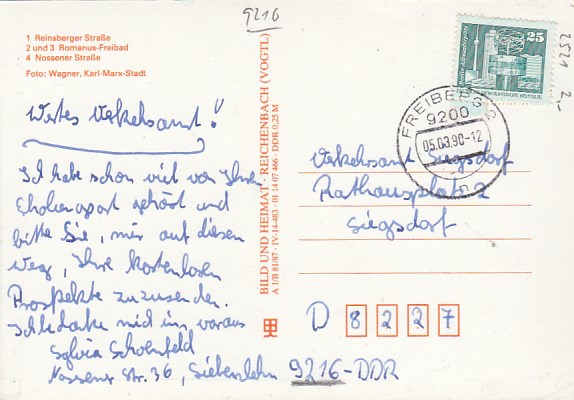 9216
1 Reinsberger Straße
2 und 3 Romanus-Freibad
4 Nossener Straße
Foto: Wagner, Karl-Marx-Stadt
Wertes Verkehrsamt!
Ich habe schon viel von Ihrem
Erholungsort gehört und
bitte Sie, mir auf diesen
Weg, Ihre kostenlosen
Prospekte zuzusenden.
Ich bedanke mich im voraus
Sylvia Schoenfeld
Nossener Str. 36, Siebenlehn 9216-DDR
BILD UND HEIMAT · REICHENBACH (VOGTL)
A 1/B 81/87 · IV-14-483 · 01 14 07 466 · DDR 0,25 M
25
FREIBERG 2
9200
05.03.90-12
n
2521 2,-
Verkehrsamt Siegsdorf
Rathausplatz 2
Siegsdorf
D 8227